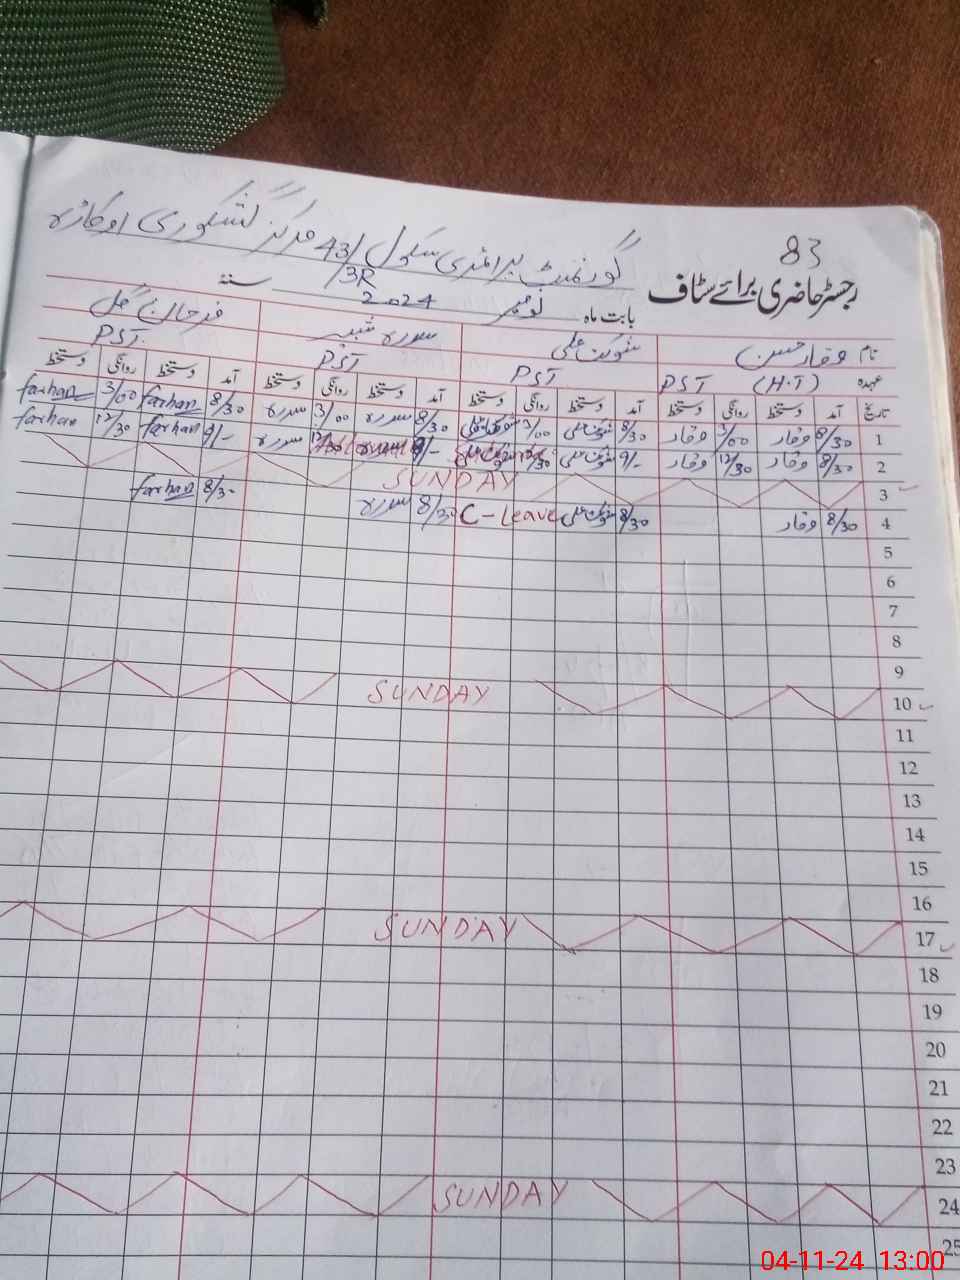 83
گورنمنٹ پرائمری سکول 43/3R مرکز گشکوری اوکاڑہ
رجسٹر حاضری برائے سٹاف
بابت ماہ نومبر 2024 سنہ
نام وقار حسن شوکت علی سدرہ شبیر فرحان گل
عہدہ PST (H.T) PST PST PST
تاریخ آمد دستخط روانگی دستخط آمد دستخط روانگی دستخط آمد دستخط روانگی دستخط آمد دستخط روانگی دستخط
1 8/30 وقار 3/00 وقار 8/30 شوکت علی 3/00 شوکت علی 8/30 سدرہ 3/00 سدرہ 8/30 farhan 3/00 farhan
2 8/30 وقار 12/30 وقار 9/- شوکت علی 12/30 شوکت علی 9/- سدرہ 9/- farhan 12/30 farhan
3 SUNDAY
4 8/30 وقار 8/30 شوکت علی C-Leave 8/30 سدرہ 8/30 farhan
5
6
7
8
9
10 SUNDAY
11
12
13
14
15
16
17 SUNDAY
18
19
20
21
22
23
24 SUNDAY
25
04-11-24 13:00